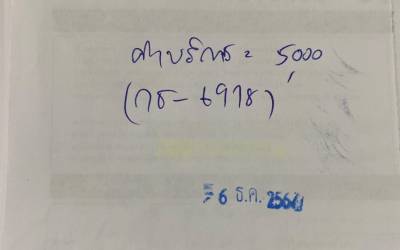 ค่าบริการ = 5,000
(กธ-6978)
6 ธ.ค. 256